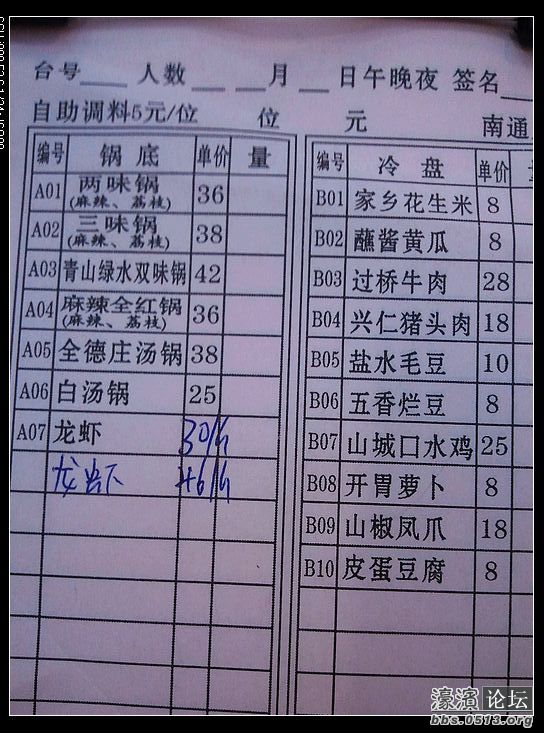 台号___ 人数___ ___月 ___日午晚夜 签名
自助调料5元/位 位 元 南通
编号 锅底 单价 量
A01 两味锅 36
(麻辣、荔枝)
A02 三味锅 38
(麻辣、荔枝)
A03 青山绿水双味锅 42
A04 麻辣全红锅 36
(麻辣、荔枝)
A05 全德庄汤锅 38
A06 白汤锅 25
A07 龙虾 30/
龙虾
编号 冷盘 单价
B01 家乡花生米 8
B02 蘸酱黄瓜 8
B03 过桥牛肉 28
B04 兴仁猪头肉 18
B05 盐水毛豆 10
B06 五香烂豆 8
B07 山城口水鸡 25
B08 开胃萝卜 8
B09 山椒凤爪 18
B10 皮蛋豆腐 8
濠滨论坛
bbs.0513.org